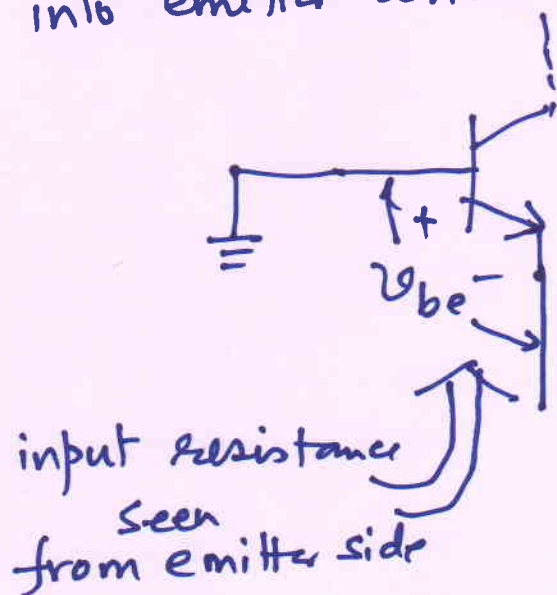 into emitter
+
v_be -
input resistance
seen
from emitter side